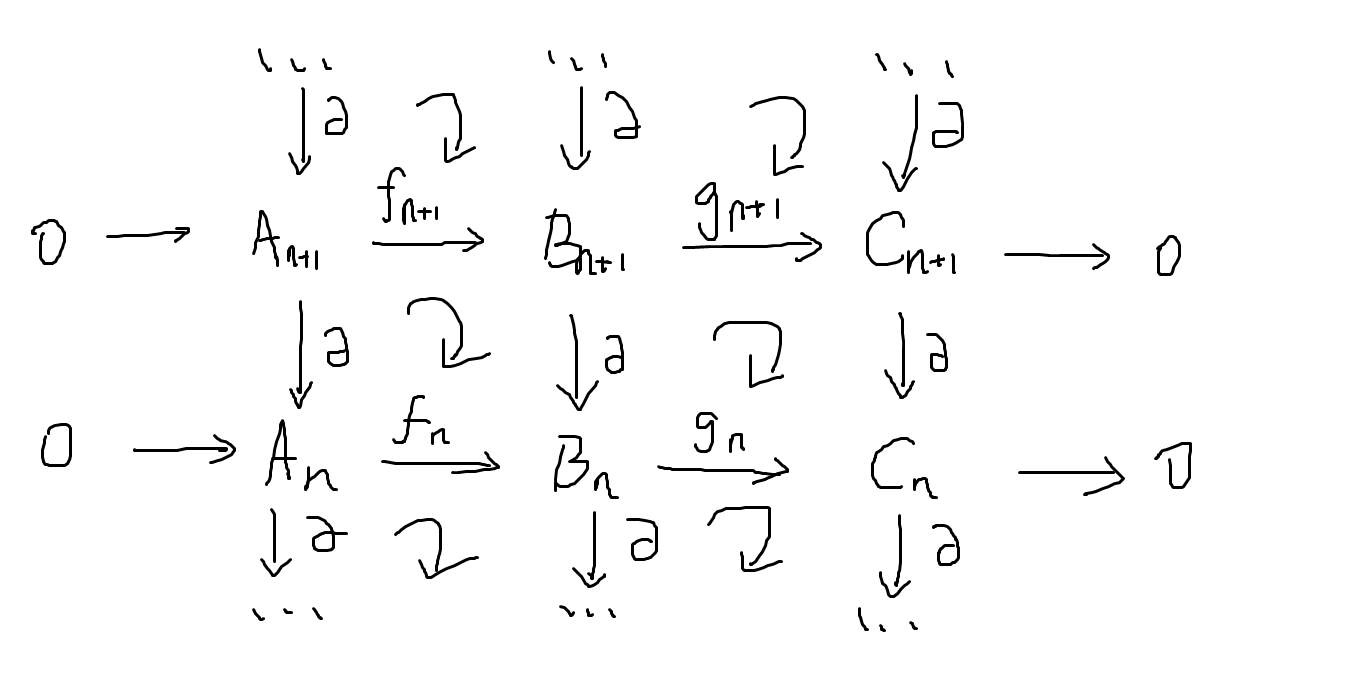 ... ... ...
∂ ∂ ∂
0 → A_{n+1} →^{f_{n+1}} B_{n+1} →^{g_{n+1}} C_{n+1} → 0
∂ ∂ ∂
0 → A_n →^{f_n} B_n →^{g_n} C_n → 0
∂ ∂ ∂
... ... ...